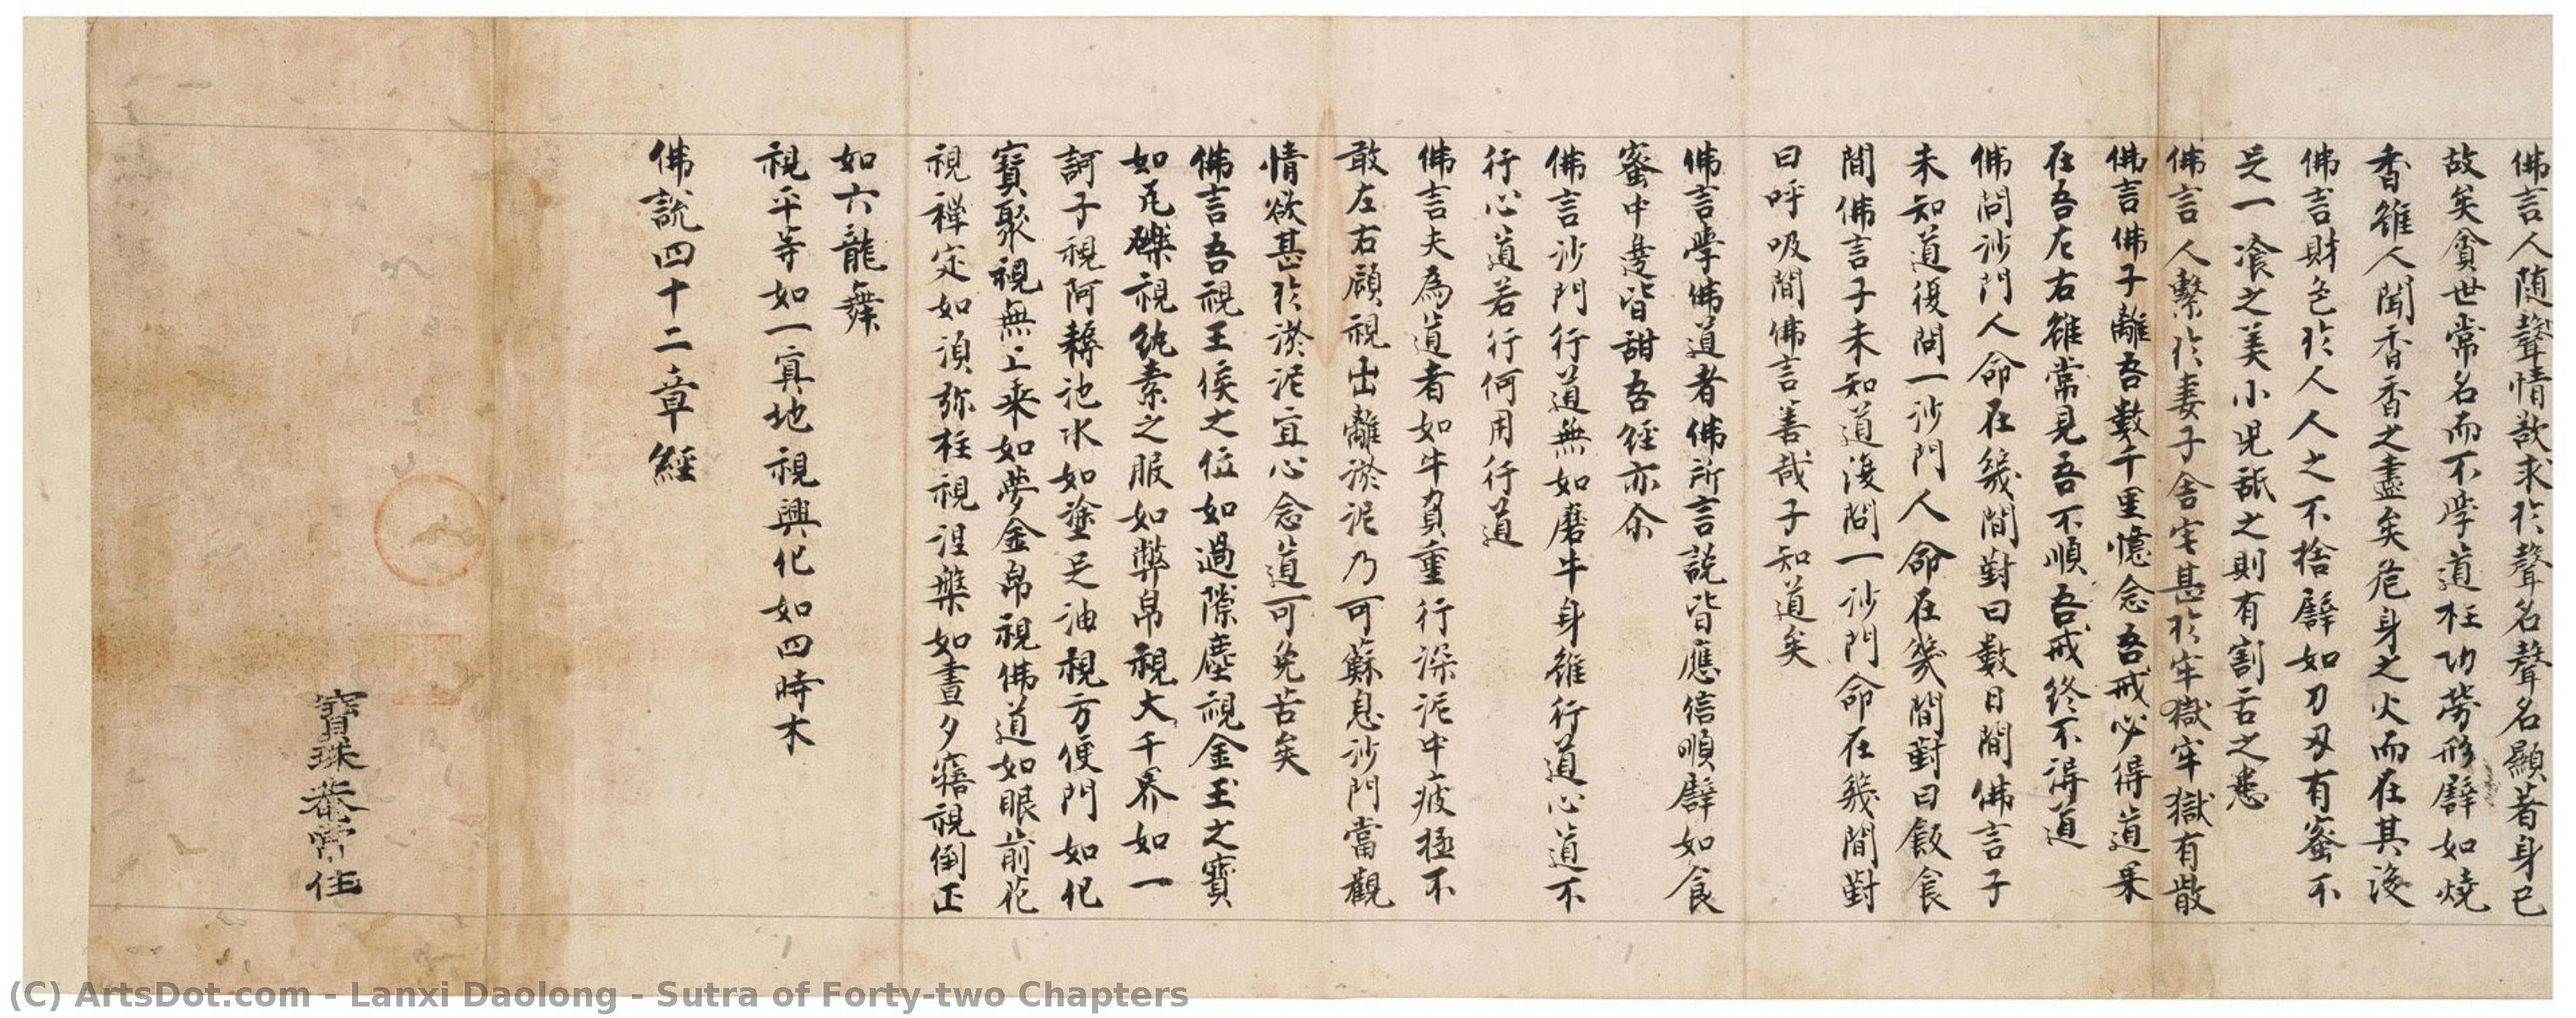 佛言人随聲情欲求於聲名聲名顯著身已
故矣貪世常名而不學道枉功勞形譬如燒
香雖人聞香香之盡矣危身之火而在其後
佛言財色於人人之不捨譬如刀刃有蜜不
足一飡之美小兒舐之則有割舌之患
佛言人繫於妻子舍宅甚於牢獄牢獄有散
佛言佛子離吾數千里憶念吾戒必得道果
在吾左右雖常見吾不順吾戒終不得道
佛問沙門人命在幾間對曰數日間佛言子
未知道復問一沙門人命在幾間對曰飯食
間佛言子未知道復問一沙門命在幾間對
曰呼吸間佛言善哉子知道矣
佛言學佛道者佛所言說皆應信順譬如食
蜜中邊皆甜吾經亦尒
佛言沙門行道無如磨牛身雖行道心道不
行心道若行何用行道
佛言夫為道者如牛負重行深泥中疲極不
敢左右顧視出離淤泥乃可蘇息沙門當觀
情欲甚於淤泥直心念道可免苦矣
佛言吾視王侯之位如過隙塵視金玉之寶
如瓦礫視紈素之服如弊帛視大千界如一
訶子視阿耨池水如塗足油視方便門如化
寶聚視無上乘如夢金帛視佛道如眼前花
視禪定如湏弥柱視涅槃如晝夕寤視倒正
如六龍舞
視平等如一真地視興化如四時木
佛說四十二章經
寶珠菴常住
(C) ArtsDot.com - Lanxi Daolong - Sutra of Forty-two Chapters